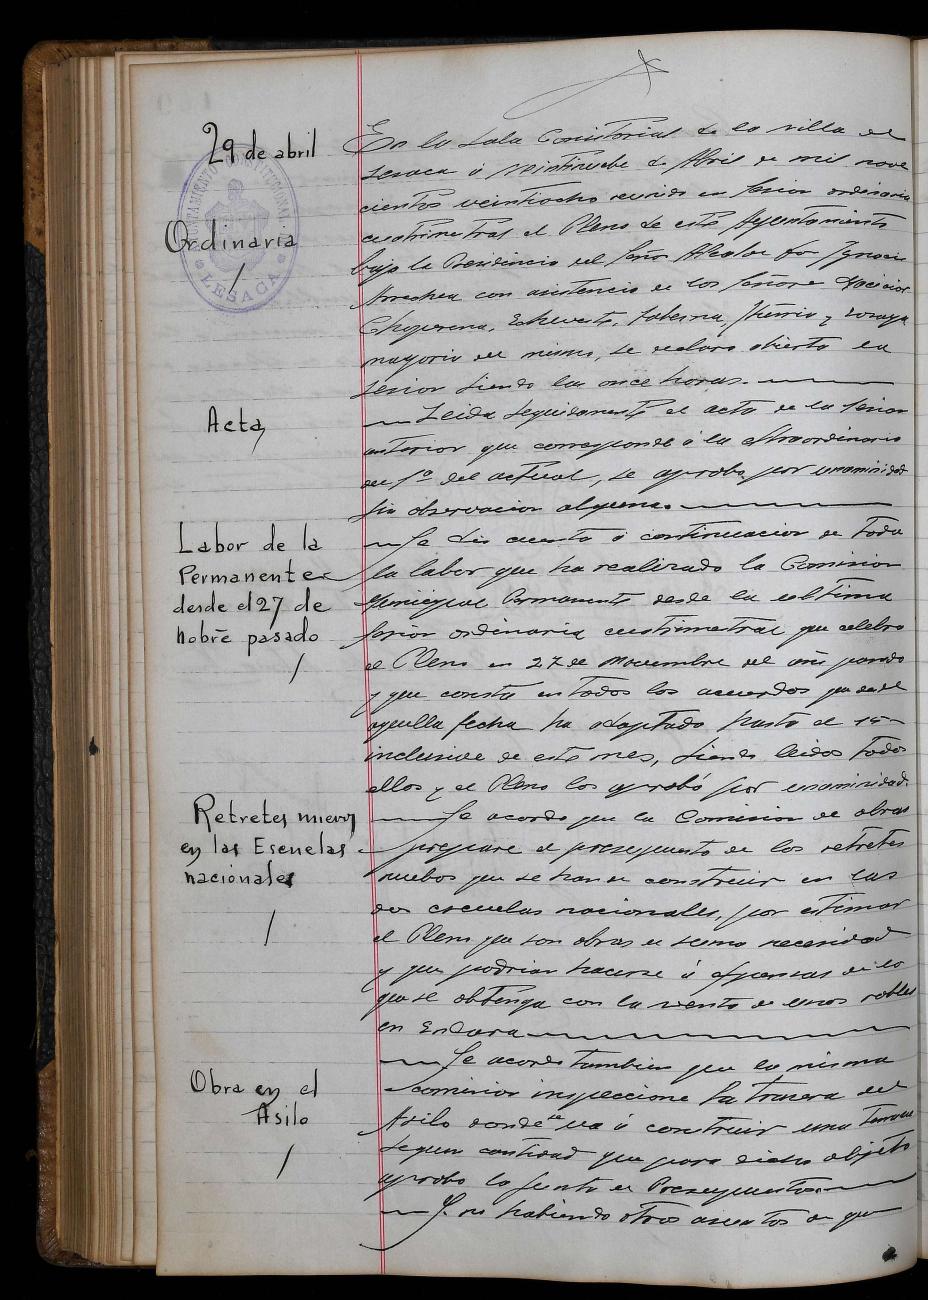 29 de abril
Ordinaria
AYUNTAMIENTO CONSTITUCIONAL
LESACA
En la Sala Consistorial de la villa de
Lesaca á veintinueve de Abril de mil nove
cientos veintiocho reunido en sesion ordinaria
cuatrimestral el Pleno de este Ayuntamiento
bajo la Presidencia del Señor Alcalde Don Ignacio
Arrechea con asistencia de los Señores
Choperena, Echeveste, Taberna, y
mayoria del mismo, se declaro abierta la
sesion siendo las once horas.
Acta
Leida seguidamente el acta de la sesion
anterior que corresponde á la extraordinaria
del 1º del actual, se aprobo por unanimidad
sin observacion alguna.
Labor de la
Permanente
desde el 27 de
nobre pasado
Se dio cuenta á continuacion de toda
la labor que ha realizado la Comision
Municipal Permanente desde la ultima
sesion ordinaria cuatrimestral que celebro
el Pleno en 27 de Noviembre del año pasado
y que consta en todos los acuerdos que desde
aquella fecha ha adoptado hasta el 15
inclusive de este mes, siendo leidos todos
ellos y el Pleno los aprobó por unanimidad.
Retretes nuevos
en las Escuelas
nacionales
Se acordo que la Comision de obras
prepare el presupuesto de los retretes
nuebos que se han de construir en las
dos escuelas nacionales, por estimar
el Pleno que son obras de suma necesidad
y que podrian hacerse á expensas de lo
que se obtenga con la venta de unos robles
en Endara
Obra en el
Asilo
Se acordo tambien que la misma
comision inspeccione la trasera del
Asilo donde se va á construir una terraza
segun cantidad que para dicho objeto
aprobo la Junta de Presupuestos.
Y no habiendo otros asuntos de que